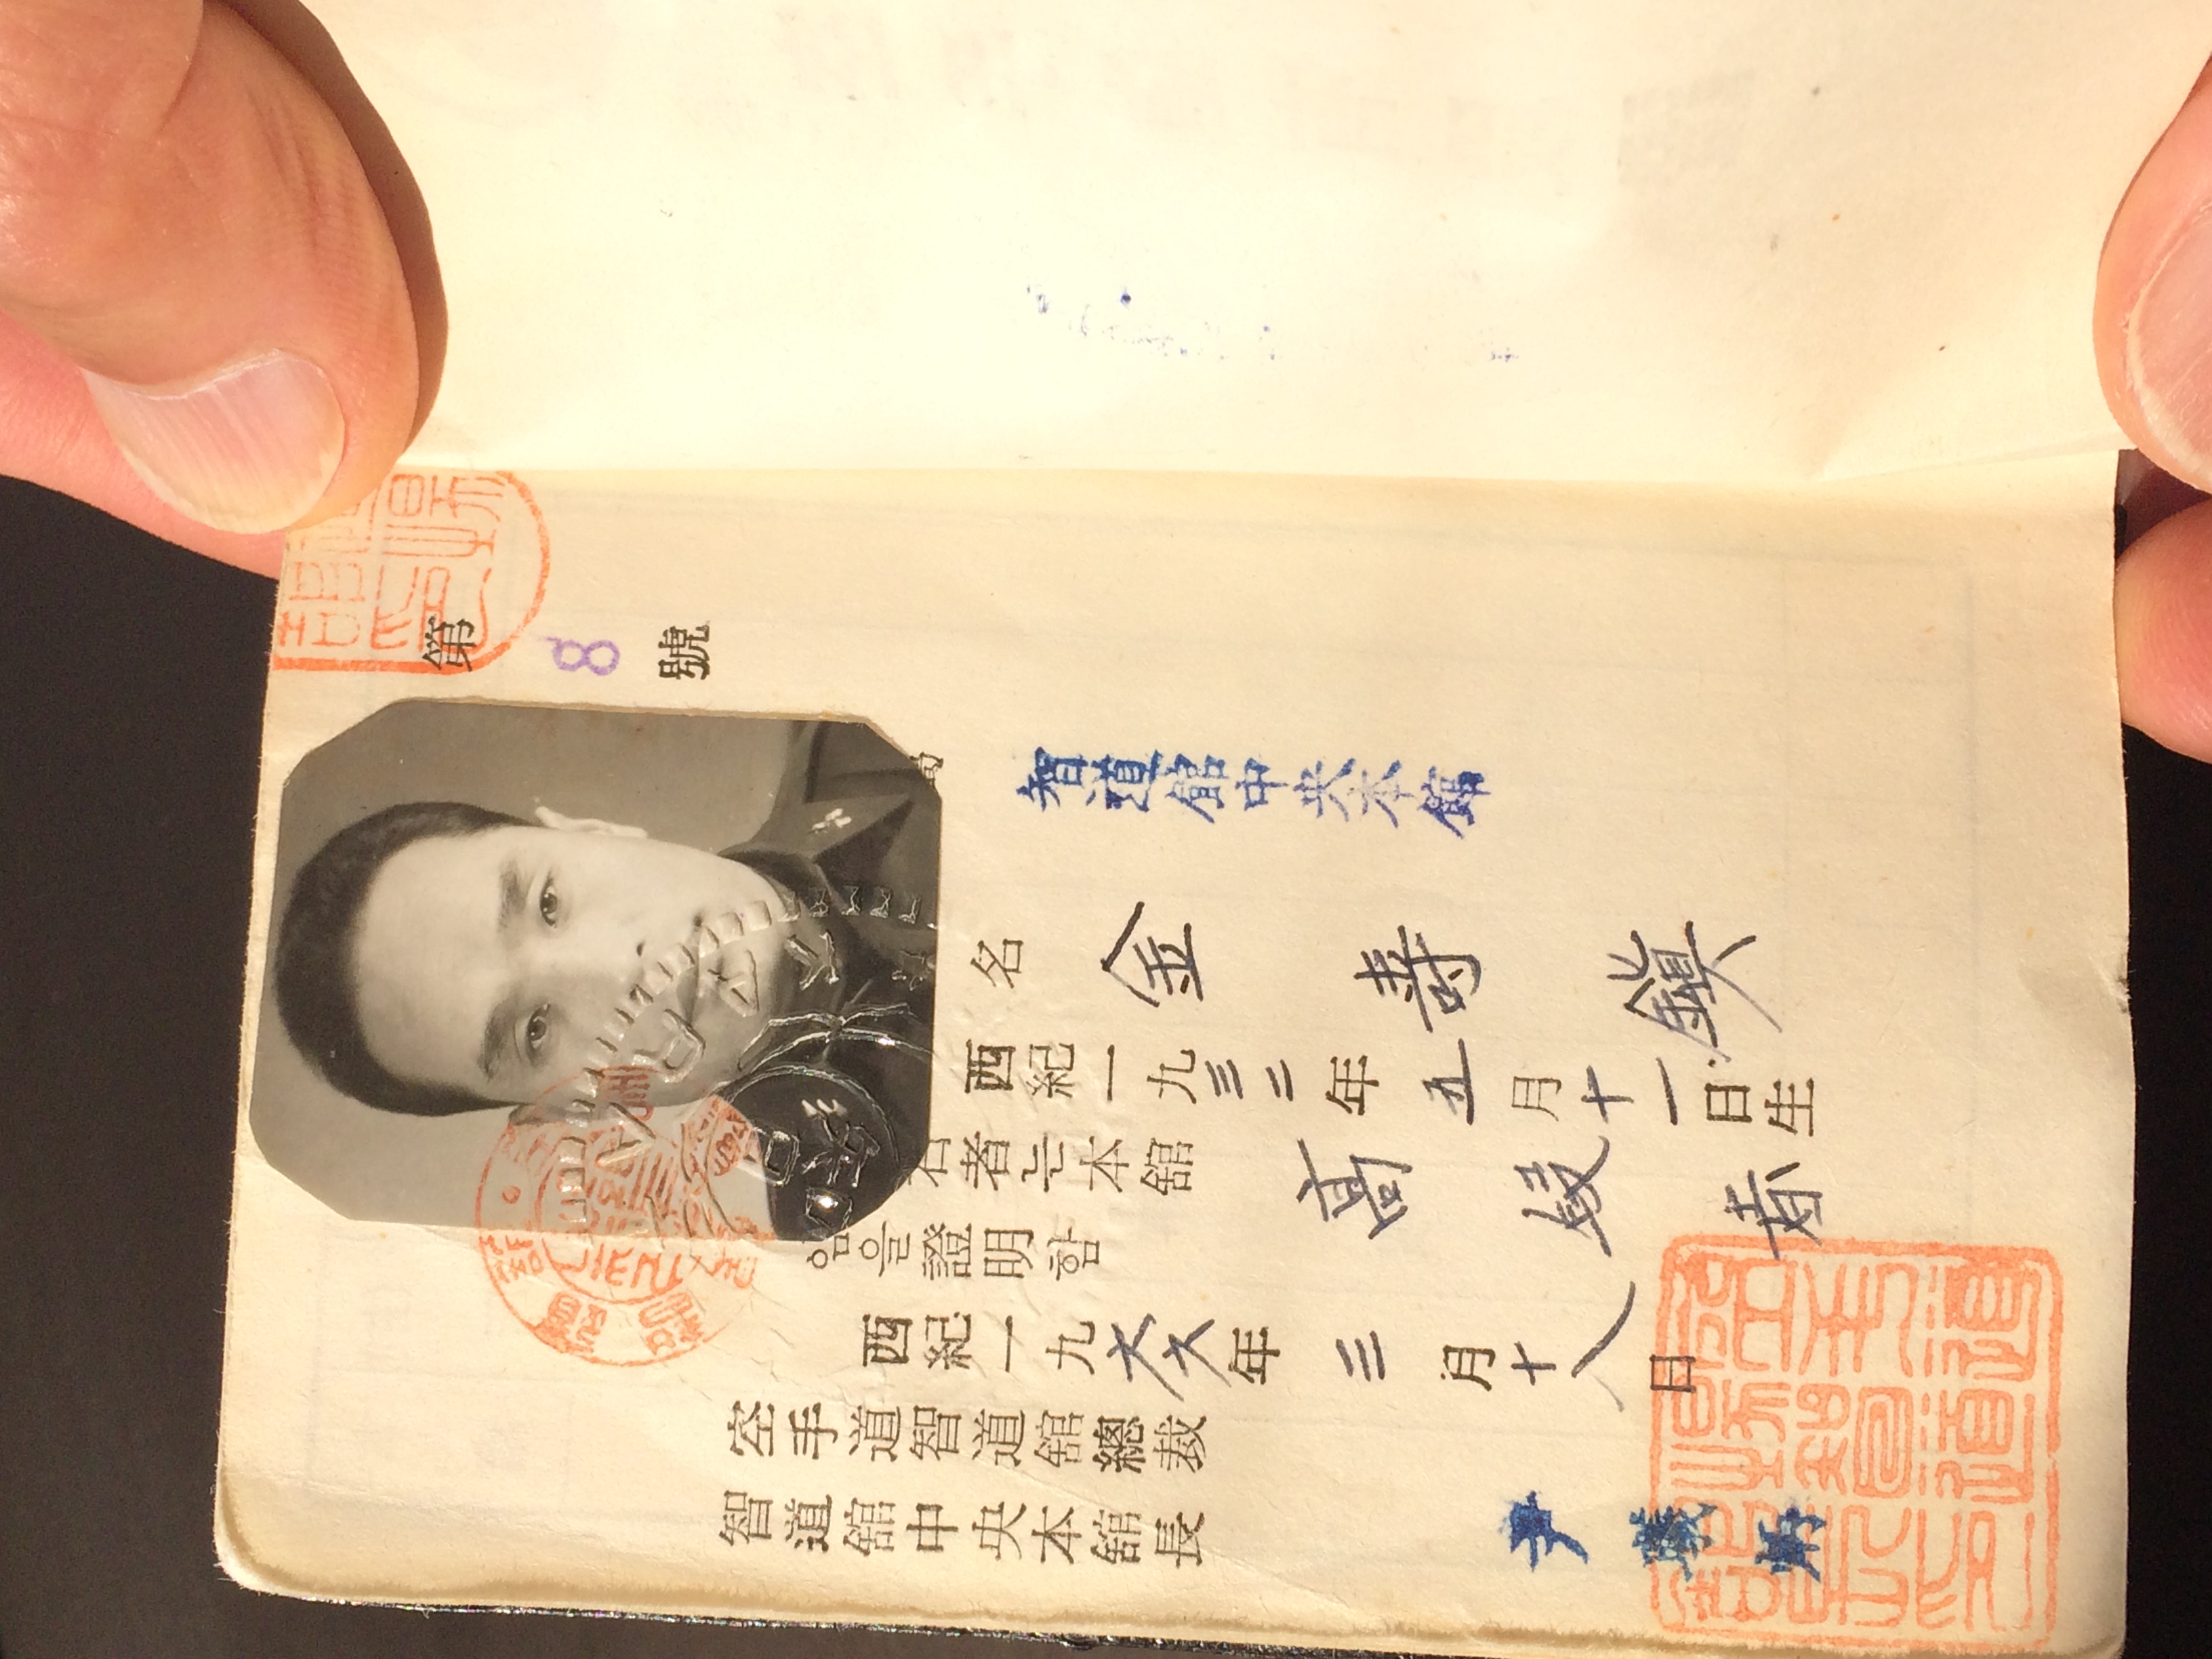 第 8 號
智道舘中央本舘
名 金 寿 鎭
西紀一九三二年五月十一日生
右者는本舘 高段者
임을證明함
西紀一九六六年三月十八日
空手道智道舘總裁
智道舘中央本舘長 尹 炳